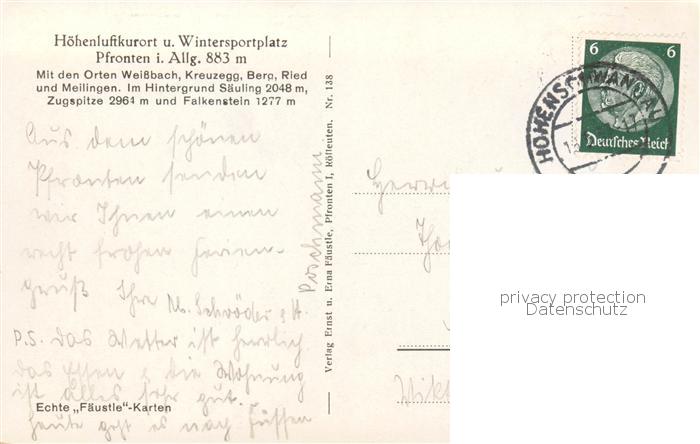 Höhenluftkurort u. Wintersportplatz
Pfronten i. Allg. 883 m
Mit den Orten Weißbach, Kreuzegg, Berg, Ried
und Meilingen. Im Hintergrund Säuling 2048 m,
Zugspitze 2964 m und Falkenstein 1277 m
Aus dem schönen
Pfronten senden
wir Ihnen einen
recht frohen Ferien-
gruß Ihre M. Schröder &
Poschmann
P.S. das Wetter ist herrlich
das Essen & die Wohnung
ist alles sehr gut.
heute geht es nach Füssen
Echte „Fäustle"-Karten
Verlag Ernst u. Erna Fäustle, Pfronten I, Rölleuten. Nr. 138
6 6
Deutsches Reich
HOHENSCHWANGAU
Herrn
privacy protection
Datenschutz